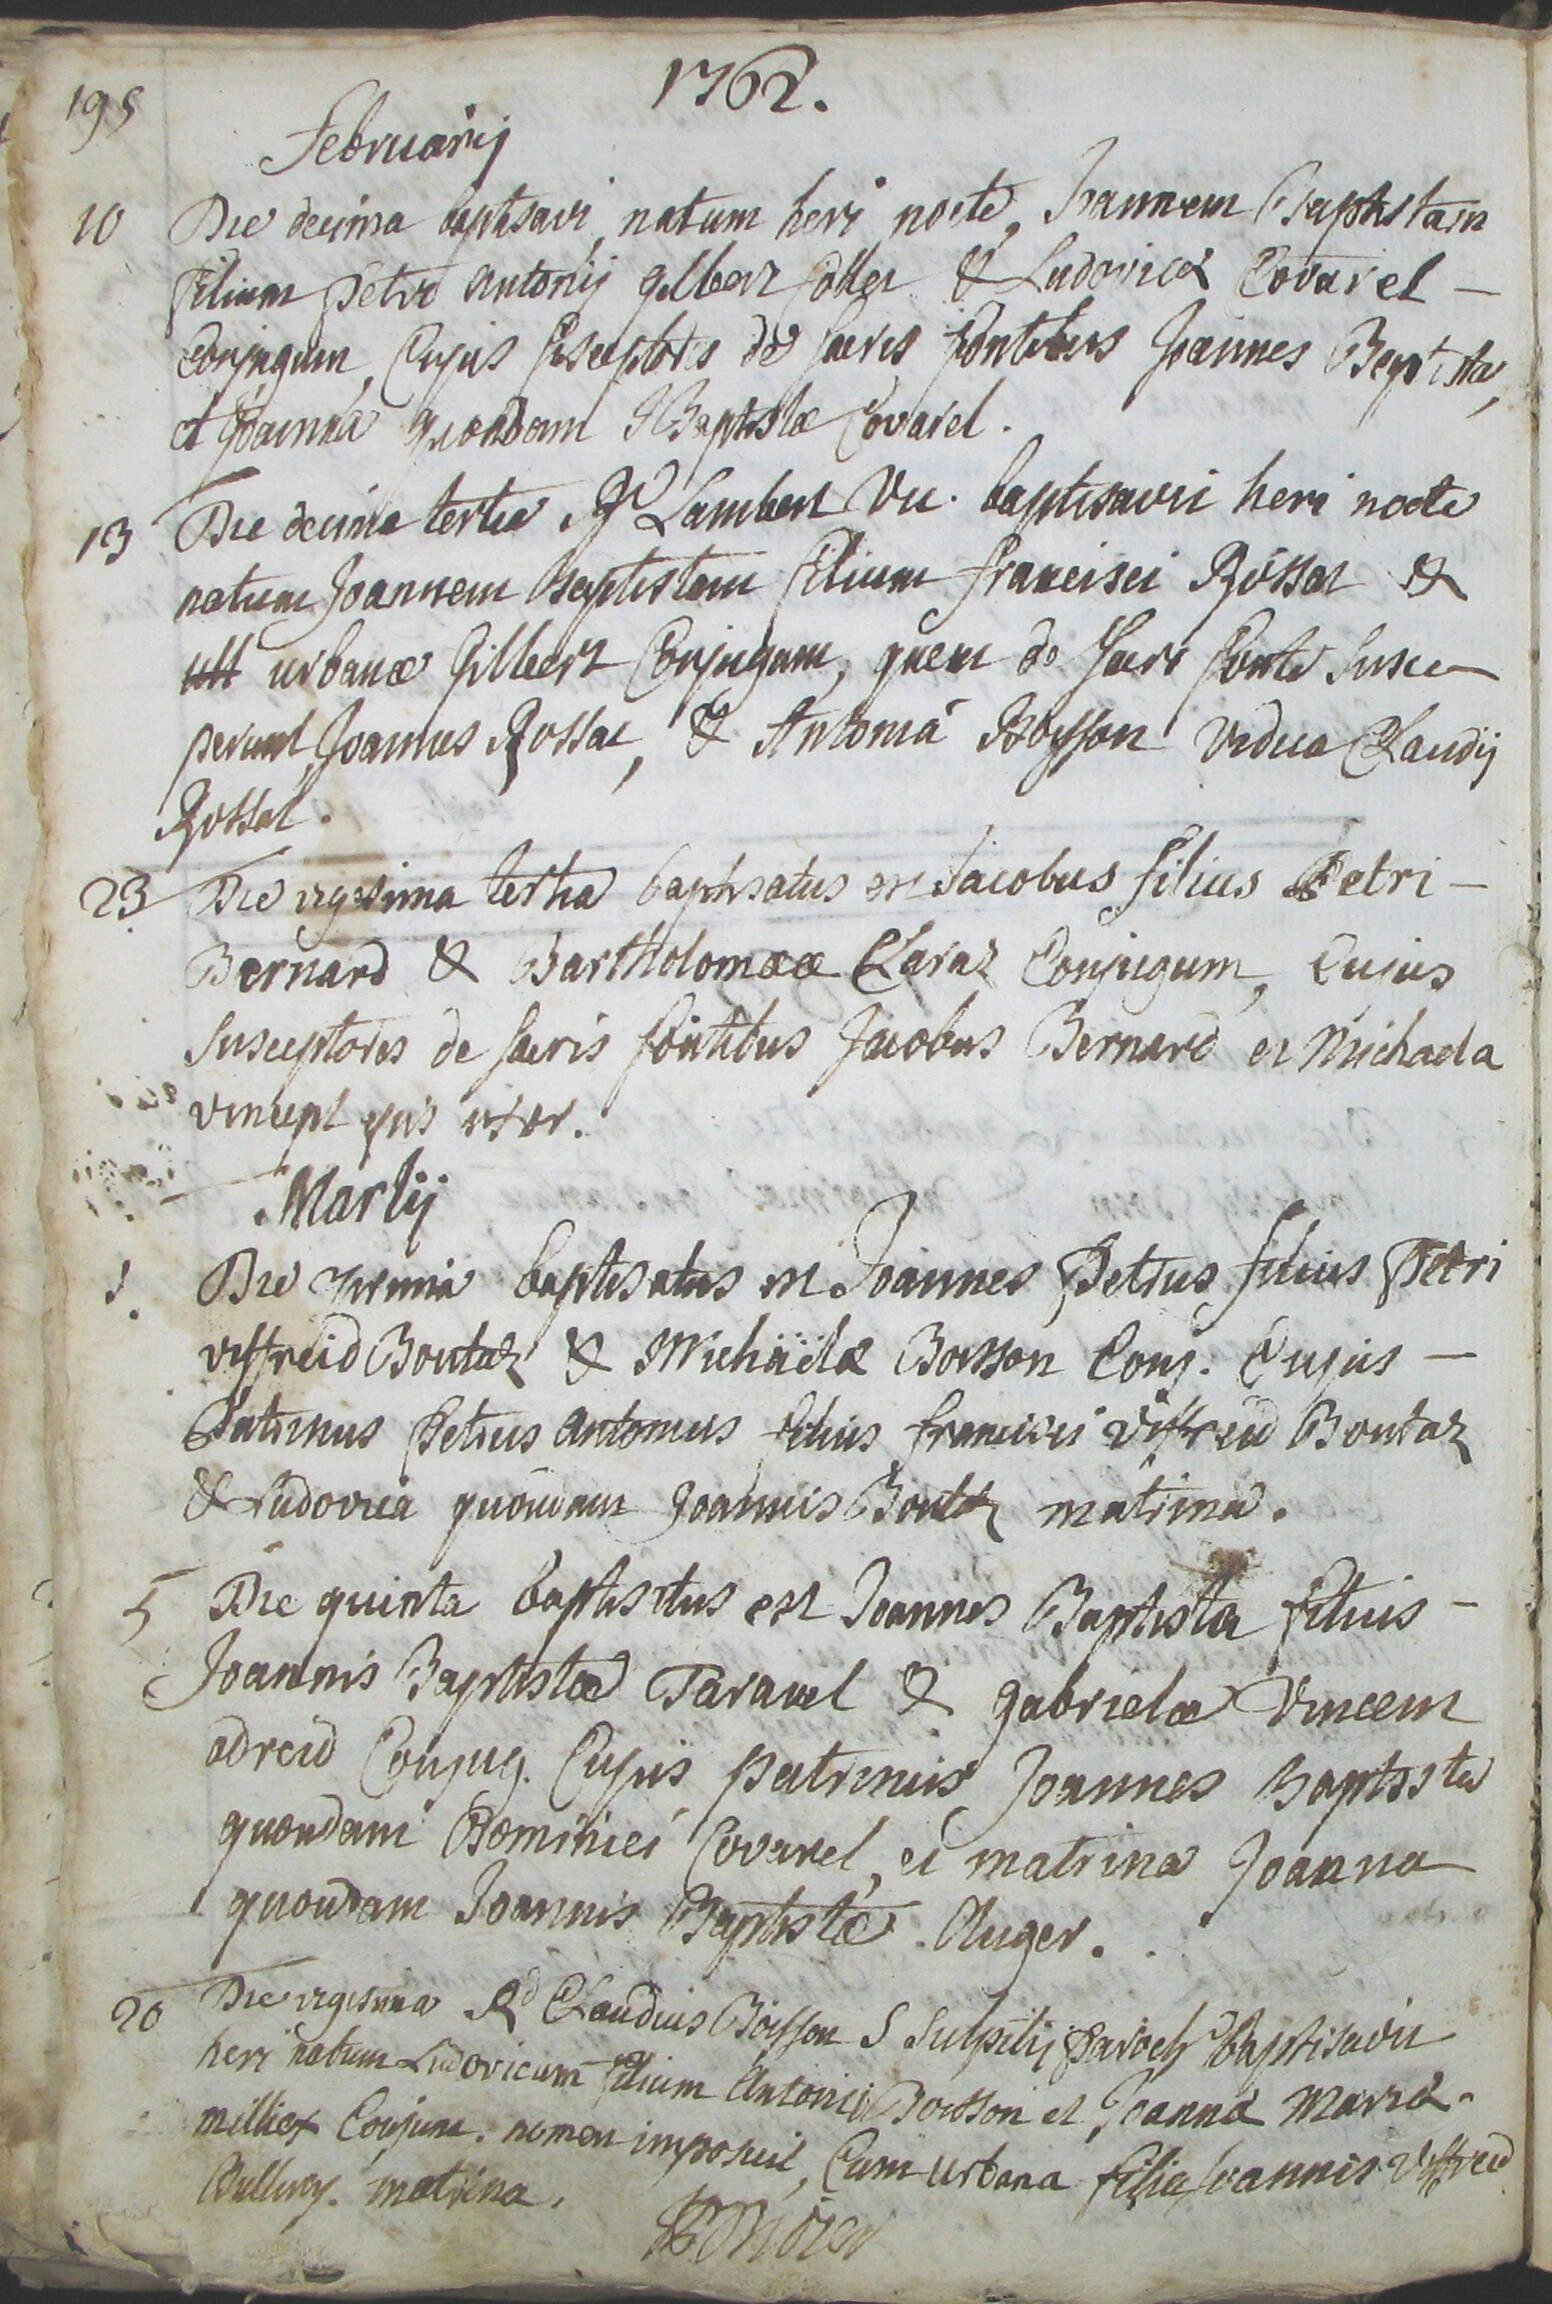 1762.
195
Februarij
10 Die decima baptisavi, natum heri nocte, Joannem Baptistam
filium Petri Antonij gilbert Collet & Ludovicæ Covarel —
Conjugum, Cujus susceptores de sacris fontibus Joannes Baptista,
et Joanna quondam J Baptistæ Covarel.
13 Die decima tertia Rd Lambert Vic. baptisavit heri nocte
natum Joannem baptistam filium francisci Rossat &
urbanæ Gilbert Conjugum, quem de Sacro fonte Susce
perunt, Joannes Rossat, & Antonia Boisson vidua Claudij
Rossat.
23 Die vigesima tertia baptisatus est Jacobus filius Petri —
Bernard & Bartholomææ Claraz Conjugum, Cujus
Susceptores de sacris fontibus Jacobus Bernard et Michaela
vincent ejus uxor.
Martij
1. Die prima baptisatus est Joannes Petrus filius Petri
viffreid Bontaz & Michaëlæ Boisson Conj. Cujus —
Patrinus Petrus Antonius filius francisci viffreid Bontaz
& Ludovica quondam Joannis Bontaz matrina.
5 Die quinta baptisatus est Joannes Baptista filius —
Joannis Baptistæ Taravel & gabrielæ Vincent
adreid Conjug. Cujus patrinus Joannes Baptista
quondam Dominici Covarel, et matrina Joanna
quondam Joannis Baptistæ Auger.
20 Die vigesima Rd Claudius Boisson S Sulpitij Paroch baptisavit
heri natum Ludovicum filium Antonii Boisson et Joannæ Mariæ
milliet Conjum. nomen imposuit, Cum urbana filia Joannis Viffreid
matrina.